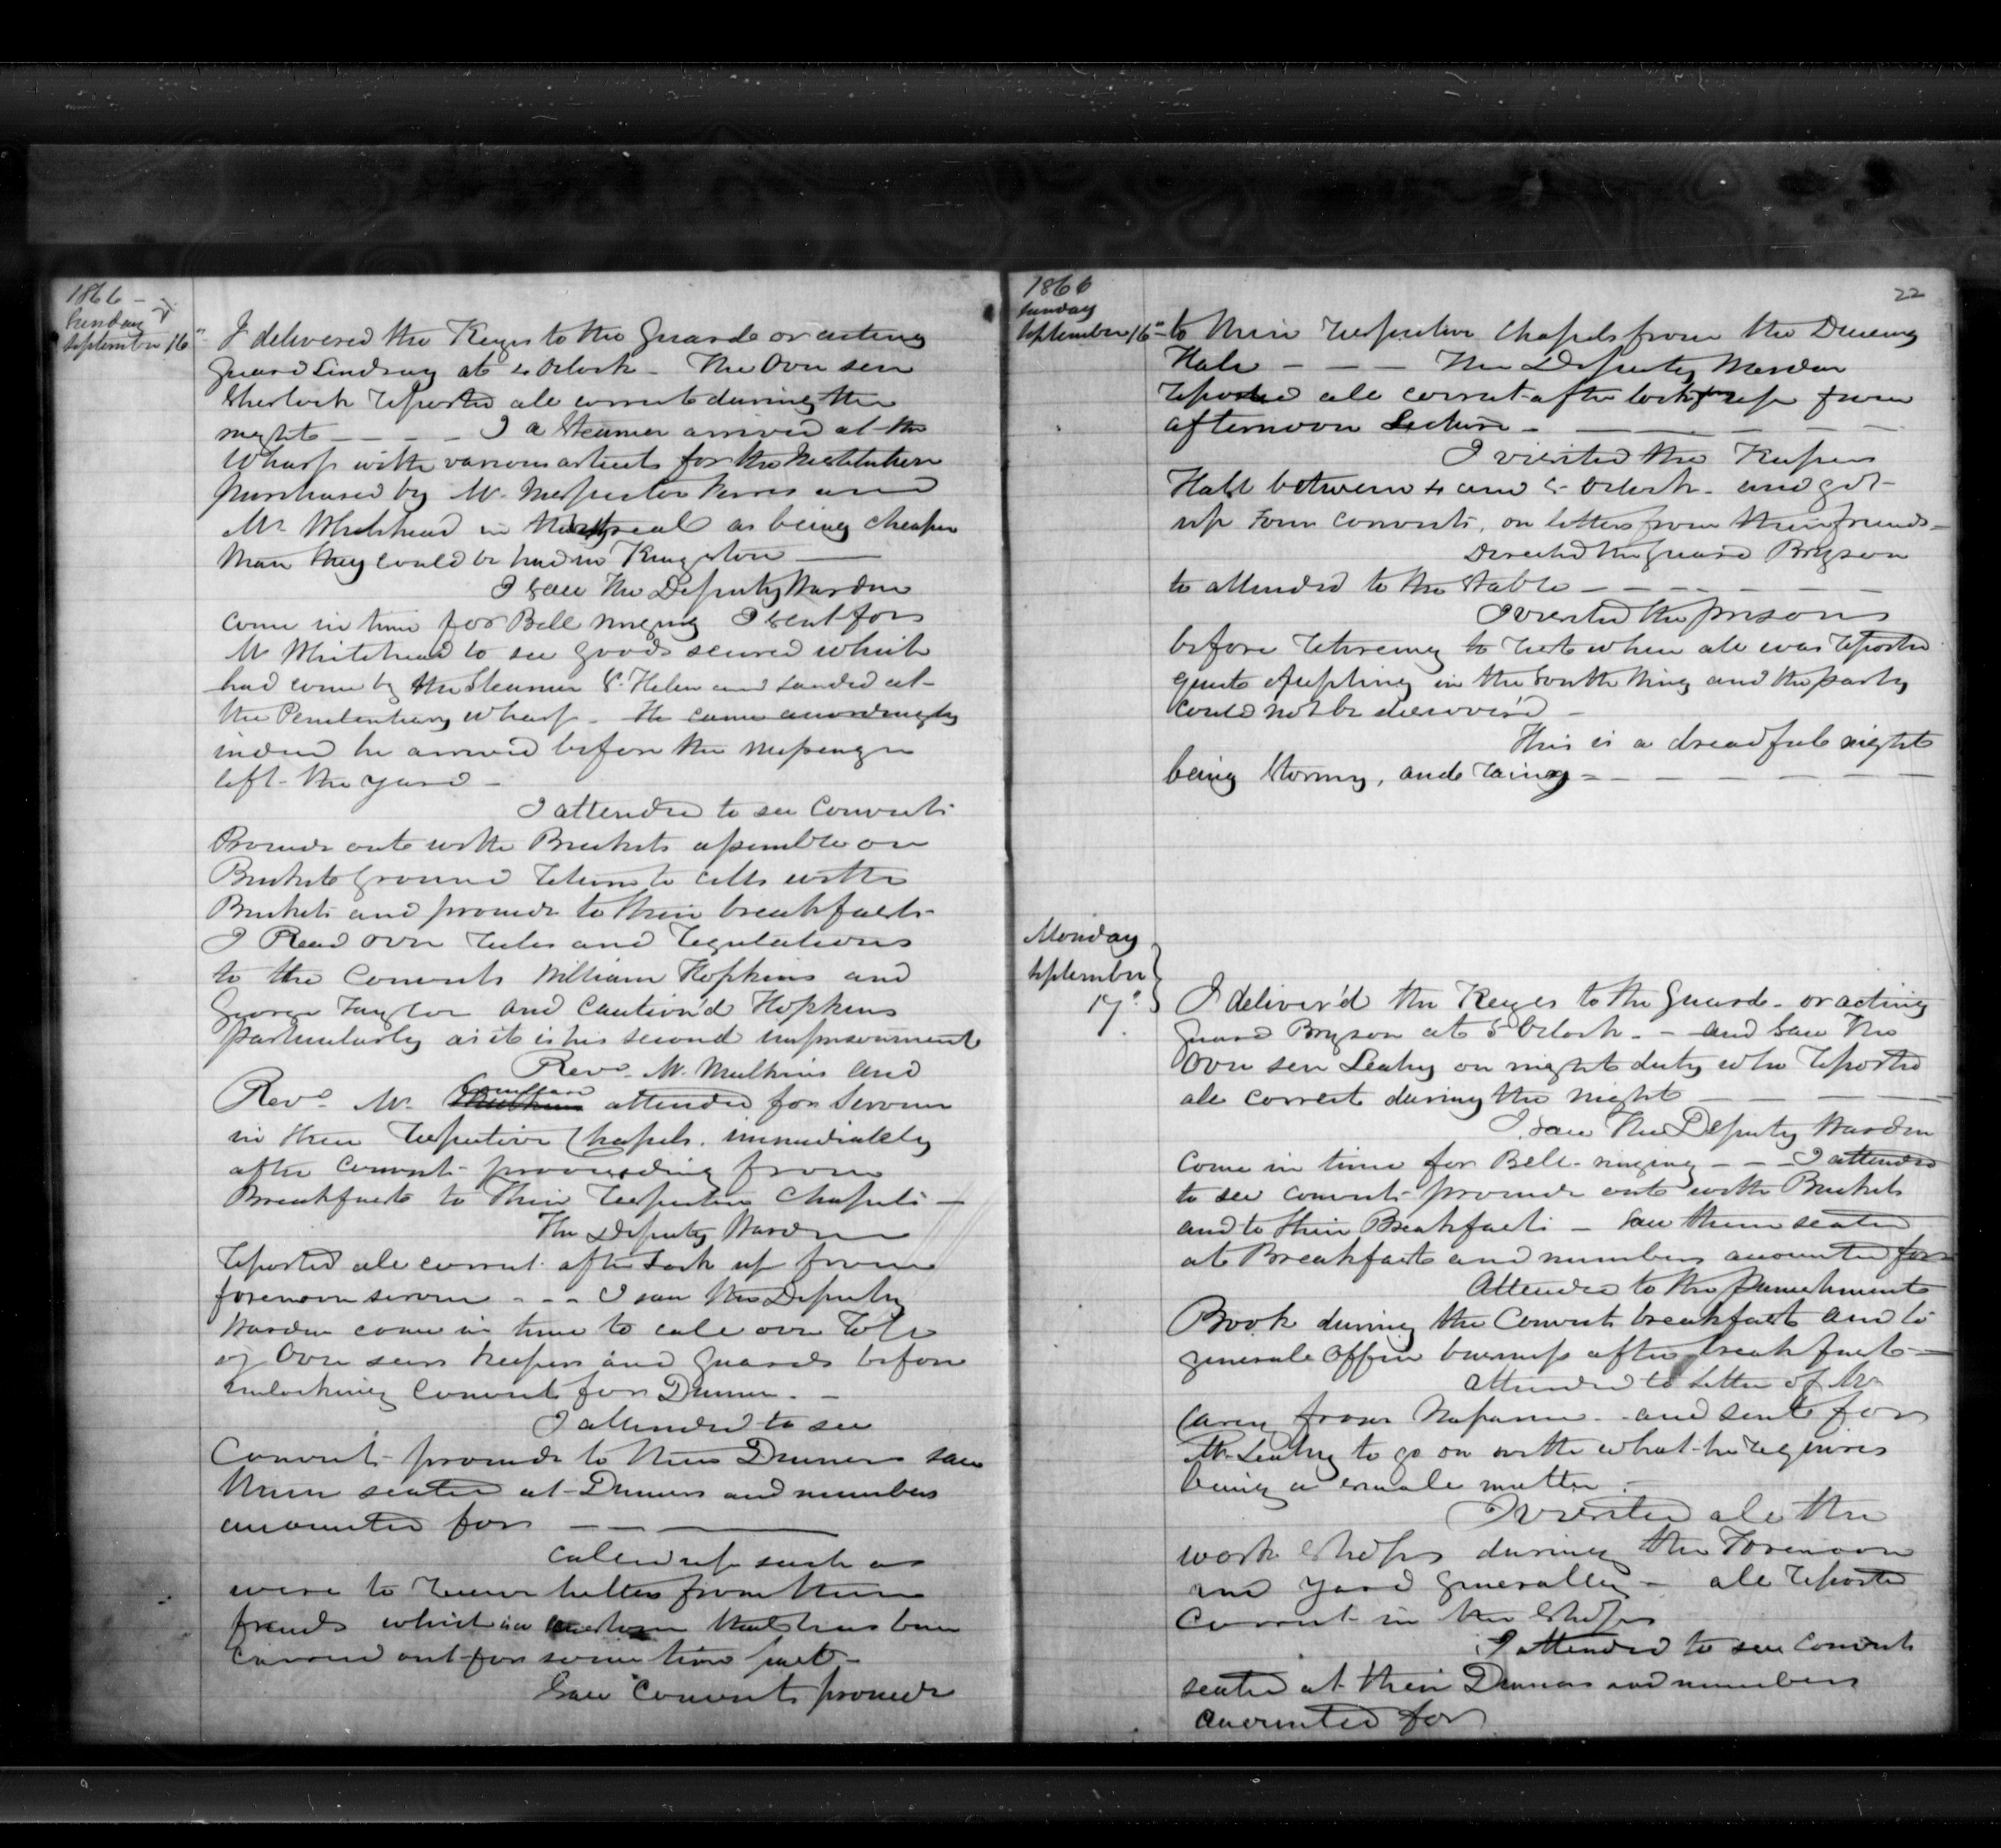 1866 –
Sunday
September 16"
I delivered the Keys to the Guard or acting
Guard Lindsay at 4 Oclock – The Over seer
Sherlock reported all correct during the
night – – – – I a Steamer arrived at the
Wharf with various articles for the Institution
purchased by Mr. Inspector Ferres and
Mr Whitehead in Montreal as being cheaper
than they could be had in Kingston –
I saw the Deputy Warden
come in time for Bell ringing I sent for
Mr Whitehead to see goods secured which
had come by the Steamer St. Helen and landed at
the Penitentiary wharf – He came accordingly
indeed he arrived before the messenger
left the yard –
I attended to see Convicts
Proceed out with Buckets assemble on
Bucket Ground return to cells with
Buckets and proceed to their breakfasts
I Read over rules and regulations
to the Convicts William Hopkins and
George Taylor and caution'd Hopkins
particularly as it is his second imprisonment
Revd. Mr. Mulkins and
Revd Mr. attended for Service
in their respective Chapels. immediately
after Convicts proceeding from
Breakfast to their respective Chapels –
The Deputy Warden
reported all correct after lock up from
forenoon service – – – I saw the Deputy
Warden come in time to call over roll
of Over seers Keepers and Guards before
unlocking Convicts for Dinner. –
I attended to see
Convicts proceed to their Dinners saw
them seated at Dinners and numbers
accounted for – – –
called up such as
were to receive letters from their
friends which is a that has been
carried out for some time past –
Saw Convicts proceed
1866
Sunday
September 16"
22
to their respective Chapels from the Dining
Hall – – – The Deputy Warden
reported all correct after locking up from
afternoon Lecture – – – –
I visited the Keepers
Hall between 4 and 5 Oclock – and got
up Four convicts, on letters from their friends –
Directed the Guard Bryson
to attended to the Stable – – – –
I visited the prison
before retireing to rest when all was reported
quiet in the South Wing and the party
could not be discover'd –
This is a dreadful night
being Stormy, and rainy – – – –
Monday
September
17"
I deliver'd the Keyes to the Guard – or acting
Guard Bryson at 5 Oclock – – and saw the
Over seer Leahy on night duty who reported
all correct during the night – – – –
I saw the Deputy Warden
come in time for Bell-ringing – – – I attended
to see convicts proceed out with Buckets
and to their Breakfasts – saw them seated
at Breakfast and numbers accounted for
Attended to the Punishment
Book during the Convicts breakfast and to
general Office business after breakfast –
attended to Letter of Mr
Carey from Napanee – and sent for
Mr Leahy to go on with what he requires
being a small matter –
I visited all the
work Shops during the Forenoon
and yard generally – all reported
Correct in the Shops
I attended to see Convicts
seated at their Dinners and numbers
accounted for